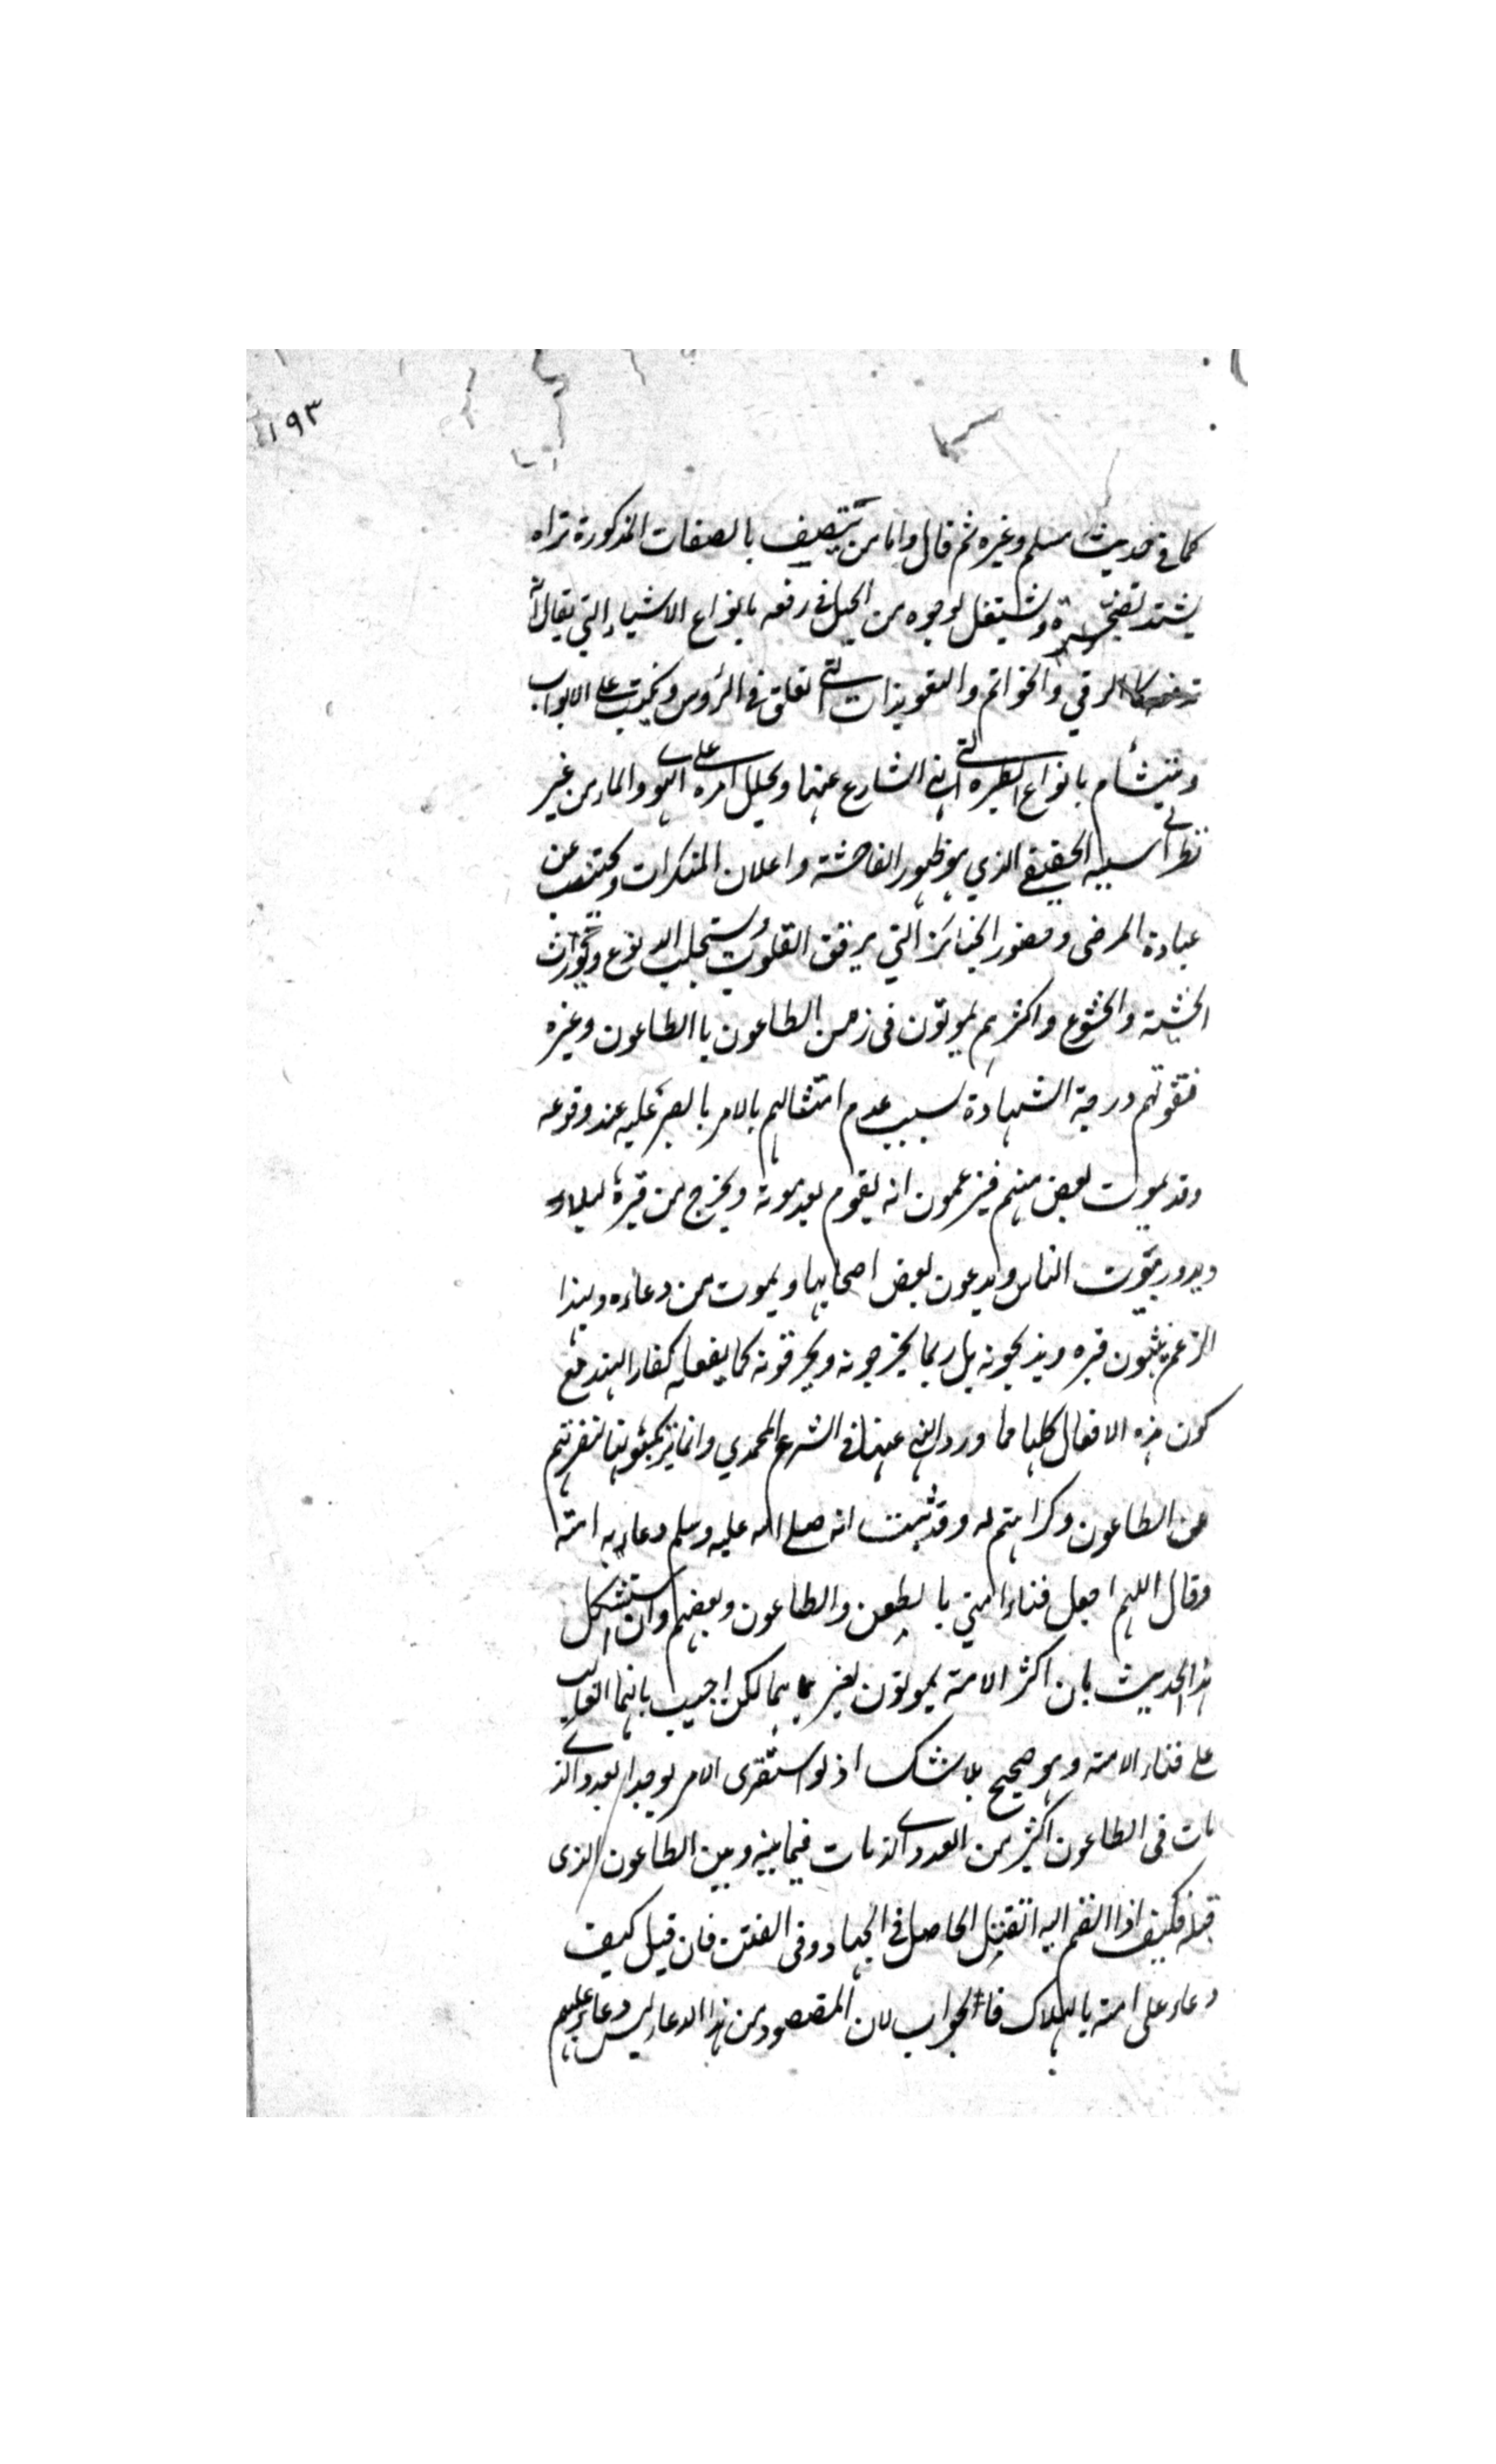 ١٩٣
كما في حديث مسلم وغيره ثم قال واما من يتصف بالصفات المذكورة تراه
يشتد تضجره ويشتغل بوجوه من الحيل في رفعه بانواع الاشياء التي يقال انه
كالرقي والخواتم والتعويذات التي تعلق في الرؤس وتكتب على الابواب
ويتشأم بانواع الطيرة التي نهي الشارع عنها ويحلل امره على الهواء والماء من غير
نظر الى سببه الحقيقي الذي هو ظهور الفاحشة واعلان المنكرات ويجتنب عن
عيادة المرضى وحضور الجنائز التي يرقق القلوب ويستجلب الدموع ويورث
الخشية والخشوع واكثرهم يموتون في زمن الطاعون باالطاعون وغيره
فتفوتهم درجة الشهادة بسبب عدم امتثالهم بالامر بالصبر عليه عند وقوعه
وقد يموت بعض منهم فيزعمون انه يقوم بعد موته ويخرج من قبره ليلا
ويدور بيوت الناس ويدعون بعض اصحابها ويموت من دعاءه وبهذا
الزعم ينبشون قبره ويذبحونه بل ربما يخرجونه ويحرقونه كما يفعله كفار الهند مع
كون هذه الافعال كلها مما ورد النهي عنها في الشرع المحمدي وانما يرتكبونها لنفرتهم
عن الطاعون وكراهتهم له وقد ثبت انه صلى الله عليه وسلم دعا به امته
وقال اللهم اجعل فناء امتي بالطعن والطاعون وبعضهم وان استشكل
هذا الحديث بان اكثر الامة يموتون بغير هما لكن اجيب بانهما الغالب
على فناء الامة وهو صحيح بلا شك اذ لو استقرى الامر لوجد العدد الذي
مات في الطاعون اكثر من العدد الذي مات فيما بينه وبين الطاعون الذى
قبله فكيف اذا انضم اليه القتل الحاصل في الجهاد وفي الفتن فان قيل كيف
دعاء على امته بالهلاك فالجواب لان المقصود من هذا الدعاء ليس دعاء عليهم